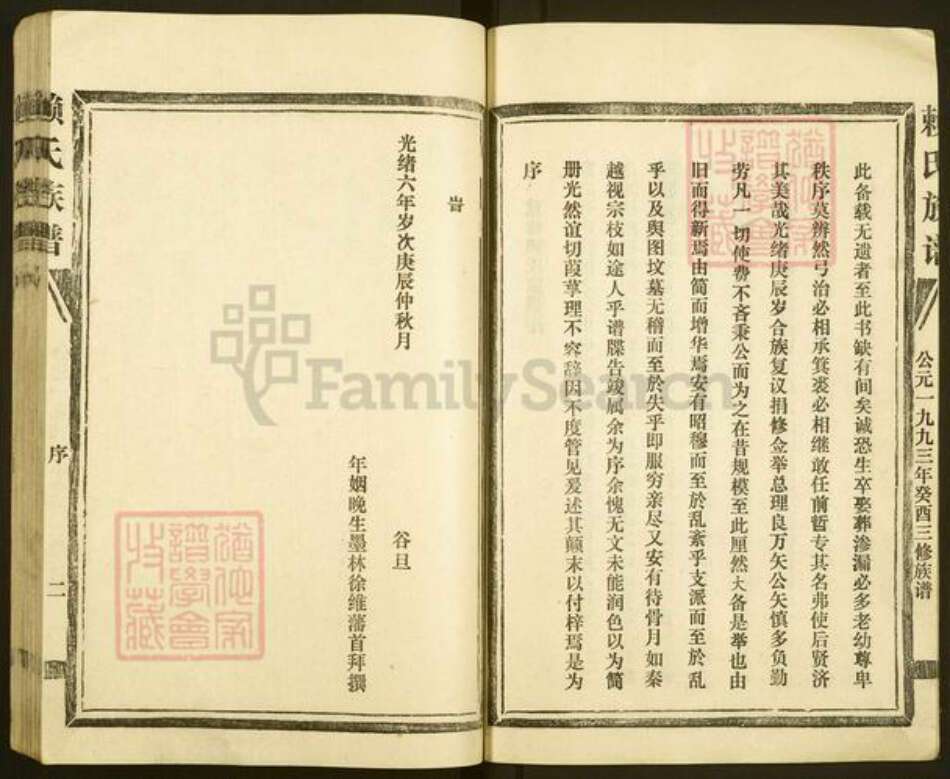 赖氏族谱
公元一九九三年癸酉三修族谱
此备载无遗者至此书缺有间矣诚恐生卒娶葬渗漏必多老幼尊卑
秩序莫辨然弓冶必相承箕裘必相继敢任前哲专其名弗使后贤济
其美哉光绪庚辰岁合族复议捐修佥举总理良万矢公矢慎多负勤
劳凡一切使费不吝秉公而为之在昔规模至此厘然大备是举也由
旧而得新焉由简而增华焉安有昭穆而至於乱紊乎支派而至於乱
乎以及舆图坟墓无稽而至於失乎即服穷亲尽又安有待骨月如秦
越视宗枝如途人乎谱牒告竣属余为序余愧无文未能润色以为简
册光然谊切葭莩理不容辞因不度管见爰述其颠末以付梓焉是为
序
旹
光绪六年岁次庚辰仲秋月 谷旦
年姻晚生墨林徐维藩首拜撰
赖氏族谱
序
二
FamilySearch